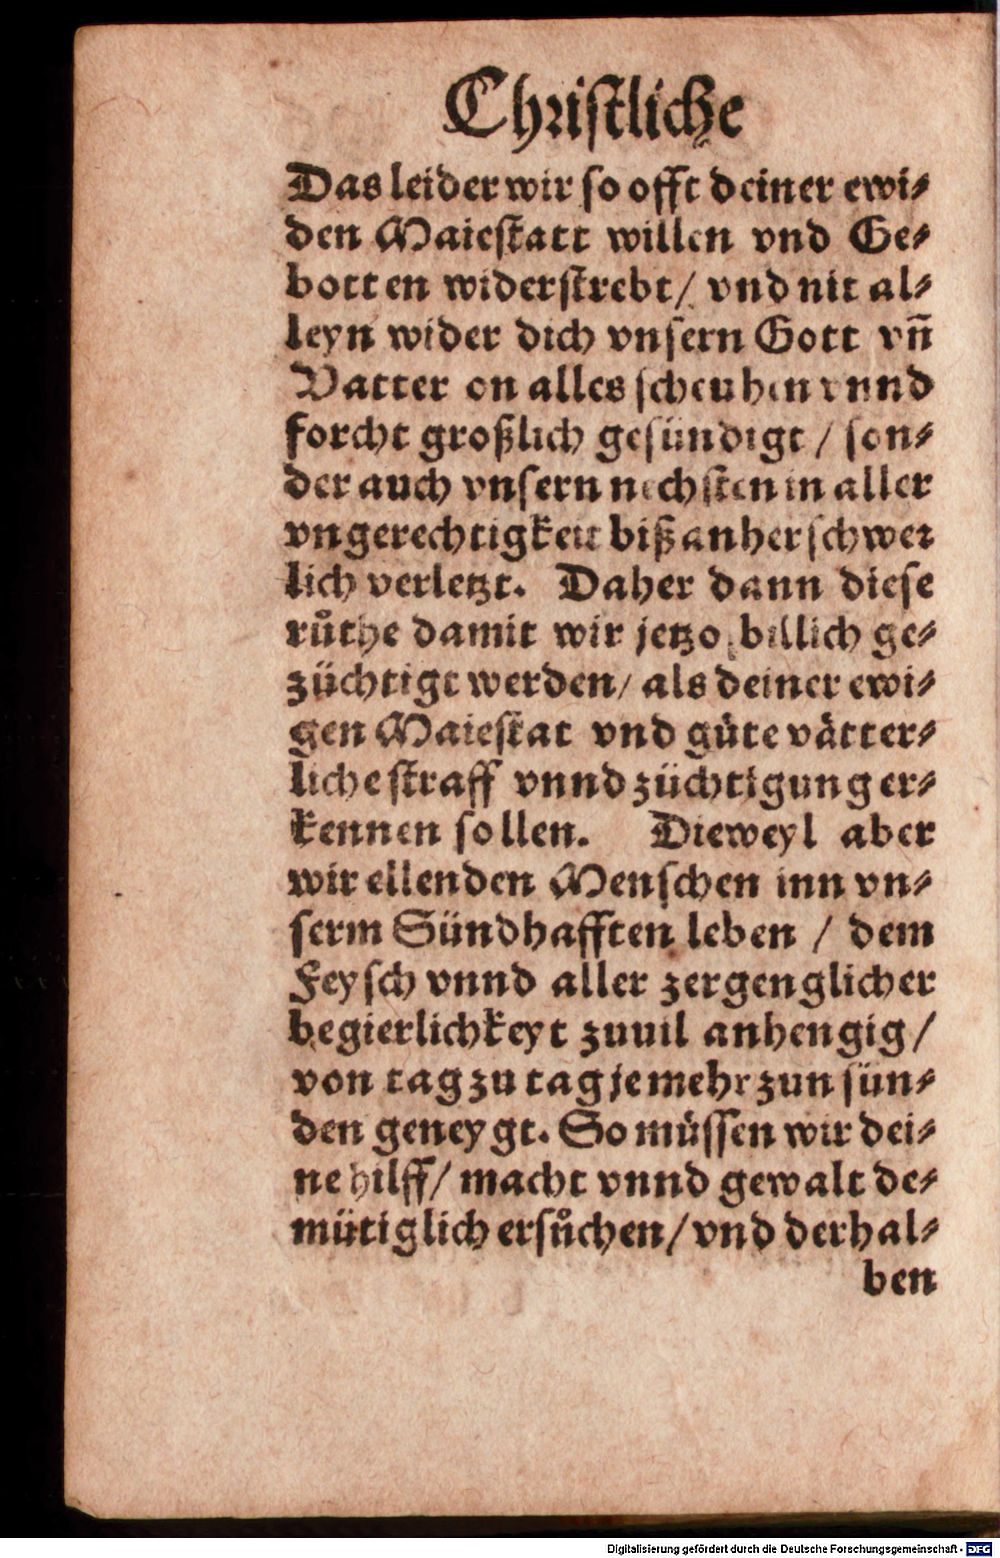 Christliche
Das leider wir so offt deiner ewi⸗
den Maiestatt willen vnd Ge⸗
botten widerstrebt/ vnd nit al⸗
leyn wider dich vnsern Gott vn̄
Vatter on alles scheuhen vnnd
forcht großlich gesündigt / son⸗
der auch vnsern nechsten in aller
vngerechtigkeit biß anher schwer
lich verletzt. Daher dann diese
růthe damit wir jetzo billich ge⸗
züchtigt werden/ als deiner ewi⸗
gen Maiestat vnd güte vätter⸗
liche straff vnnd züchtigung er⸗
kennen sollen. Dieweyl aber
wir ellenden Menschen inn vn⸗
serm Sündhafften leben / dem
Feysch vnnd aller zergenglicher
begierlichkeyt zuuil anhengig /
von tag zu tag je mehr zun sün⸗
den geneygt. So müssen wir dei⸗
ne hilff/ macht vnnd gewalt de⸗
mütiglich ersůchen/ vnd derhal⸗
ben
Digitalisierung gefördert durch die Deutsche Forschungsgemeinschaft - DFG